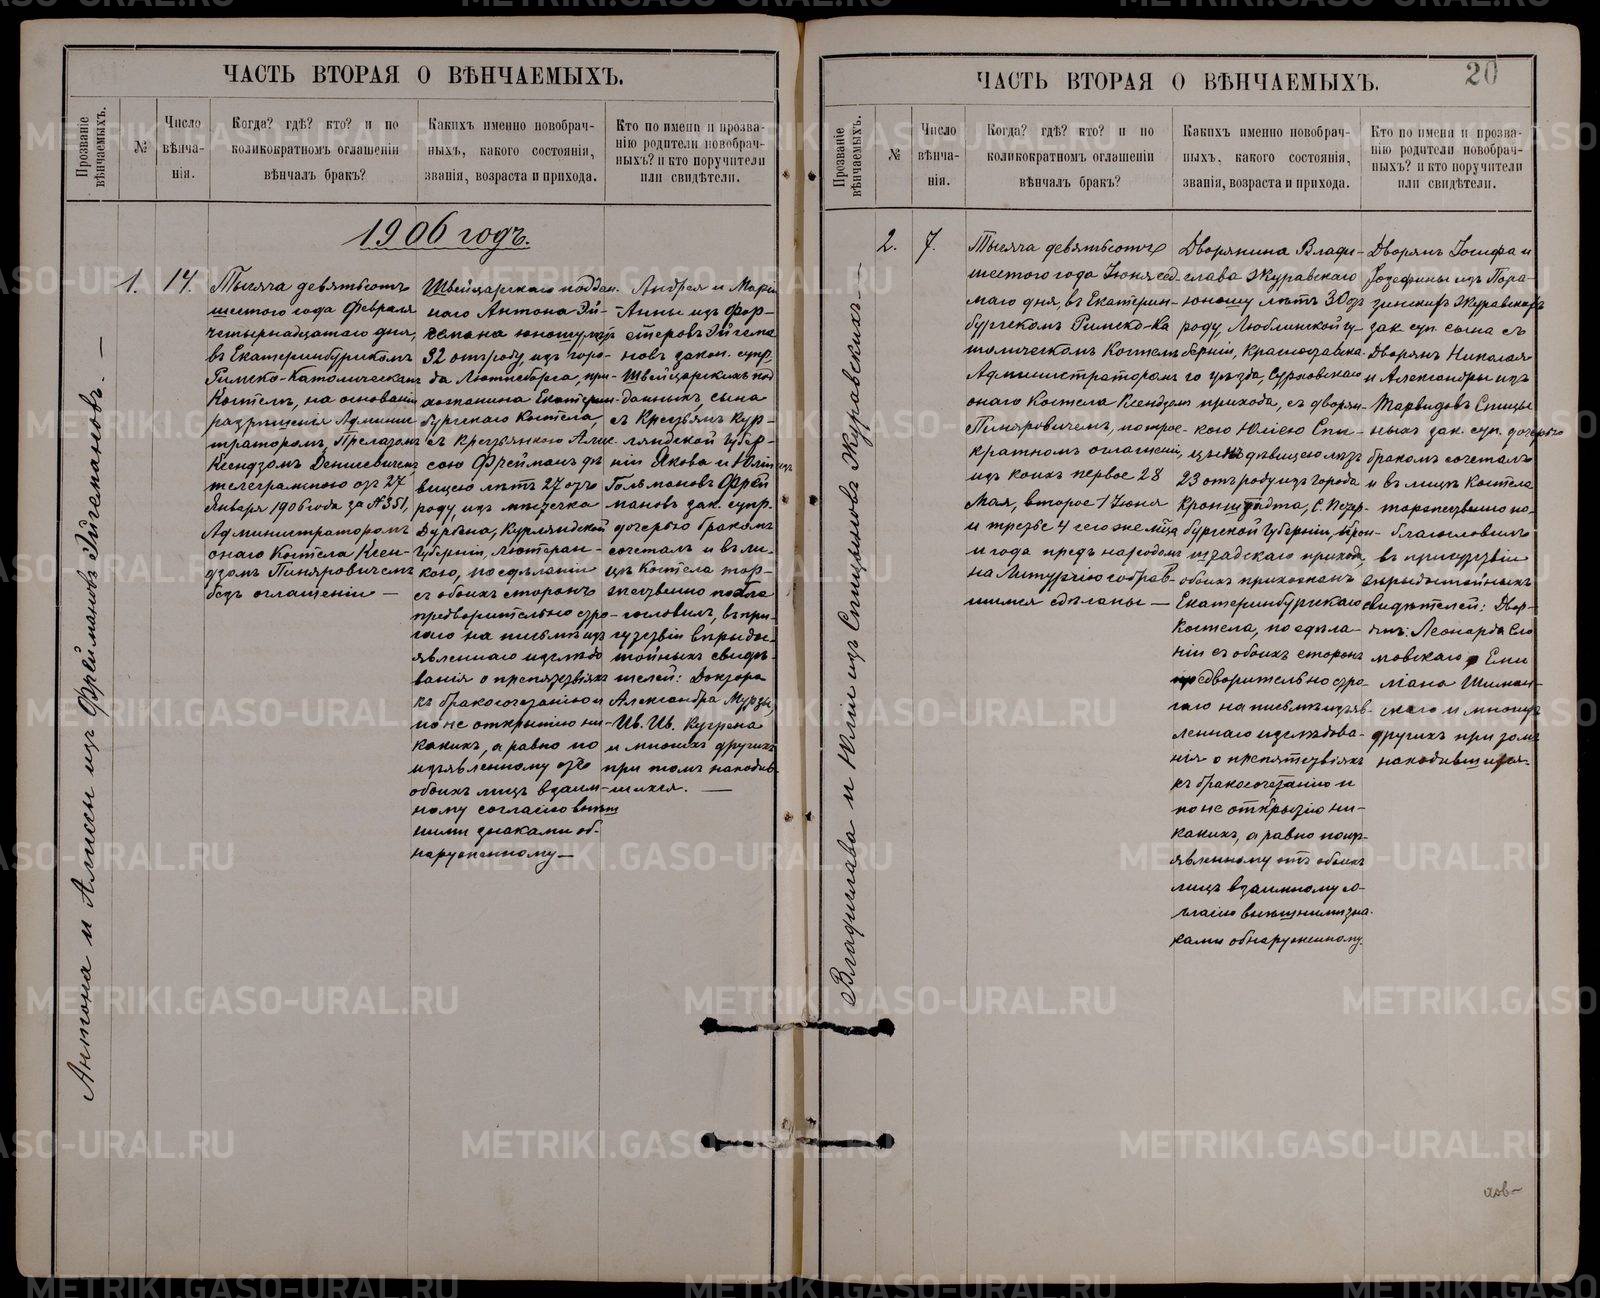 ЧАСТЬ ВТОРАЯ О ВѢНЧАЕМЫХЪ.
Прозваніе
вѣнчаемыхъ.
№
Число
вѣнча-
нія.
Когда? гдѣ? кто? и по
коликократномъ оглашеніи
вѣнчалъ бракъ?
Какихъ именно новобрач-
ныхъ, какого состоянія,
званія, возраста и прихода.
Кто по имени и прозва-
нію родители новобрач-
ныхъ? и кто поручители
или свидѣтели.
1906 годъ.
Антона и Алисы изъ Фреймановъ Эйгемановъ. —
1.
14.
Тысяча девятьсотъ
шестого года Февраля
четырнадцатаго дня,
въ Екатеринбургскомъ
Римско-Католическомъ
Костелѣ, на основаніи
разрѣшенія Админи
тратором, Прелатомъ
Ксендзомъ Денисевичемъ
телеграммою отъ 27
Января 1906 года за №351,
Администраторомъ
онаго Костела Ксен-
дзомъ Пиняровичемъ
безъ оглашеніи —
Швейцарскаго поддан-
наго Антона Эй-
гемана юношу лѣтъ
32 отъ роду изъ горо-
да Лютнсбурга, при-
хожанина Екатерин-
бургскаго Костела,
съ Крестьянкою Али-
сою Фрейманъ дѣ
вицею лѣтъ 27 отъ
роду, изъ мѣстечка
Дурбена, Курляндской
губерніи, лютеран-
кою, по сдѣланіи
съ обоихъ сторонъ
предворительно стро-
гаго на письмѣ изъ
явленнаго изслѣдо
ванія о препятствіяхъ
къ бракосочетанію и
по не открытію ни-
какихъ, а равно по
изъявленному отъ
обоихъ лицъ взаим-
ному согласію внѣш
ними знаками об-
наруженному —
Андрея и Маріи
Анны изъ Фор-
стеровъ Эйгема
новъ закон. супр.
Швейцарскихъ под
данныхъ, сына
съ Крестьянъ Кур-
ляндской губер-
ніи Якова и Юліи изъ
Гольмановъ Фрей
мановъ зак. супр.
дочерью бракомъ
сочеталъ и въ ли-
цѣ Костела тор-
жественно побла
гословилъ, въ при-
сутствіи впрыдо-
стойныхъ свидѣ-
телей: Доктора
Александра
Ив. Ив. Кутрена
и многихъ другихъ
при томъ находив-
шихся. —
ЧАСТЬ ВТОРАЯ О ВѢНЧАЕМЫХЪ.
20
Прозваніе
вѣнчаемыхъ.
№
Число
вѣнча-
нія.
Когда? гдѣ? кто? и по
коликократномъ оглашеніи
вѣнчалъ бракъ?
Какихъ именно новобрач-
ныхъ, какого состоянія,
званія, возраста и прихода.
Кто по имени и прозва-
нію родители новобрач-
ныхъ? и кто поручители
или свидѣтели.
Владислава и Юліи изъ Спицыновъ Журавскихъ. —
2.
7.
Тысяча девятьсотъ
шестого года Іюня сед
маго дня, въ Екатерин-
бургскомъ Римско-Ка
толическомъ Костелѣ
Администраторомъ
онаго Костела Ксендзомъ
Пиняровичемъ, по трое-
кратномъ оглашеніи,
изъ коихъ первое 28
Мая, второе 1 Іюня
и третье 4 сего же м-ца
и года предъ народомъ
на Литургію собрав-
шимся сдѣланы —
Дворянина Влади-
слава Журавскаго
юношу лѣтъ 30 отъ
роду, Люблинской гу-
берніи, Красноставска
го уѣзда, Суховскаго
прихода, съ дворян-
кою Юліею Спи-
цыной дѣвицею лѣтъ
23 отъ роду изъ города
Кронштадта, С. Петер-
бургской Губерніи, Крон-
штадскаго прихода,
обоихъ прихожанъ
Екатеринбургскаго
Костела, по сдѣла-
ніи съ обоихъ сторонъ
предворительно стро-
гаго на письмѣ изъяв-
леннаго изслѣдова-
нія о препятствіяхъ
къ бракосочетанію и
по не открытію ни-
какихъ, а равно по изъ-
явленному отъ обоихъ
лицъ взаимному со-
гласію внѣшними зна-
ками обнаруженному
Дворянъ Іосифа и
Іозефины изъ Пора-
зинскихъ Журавскихъ
зак. суп. сына съ
Дворянъ Николая
и Александры изъ
Тарвидовъ Спицы
ныхъ зак. суп. дочерью
бракомъ сочеталъ
и въ лицѣ Костела
торжественно по-
благословилъ
въ присутствіи
впрыдостойныхъ
свидѣтелей: Двор-
янъ: Леонарда Сло
мовскаго, Еми
ліана Шиман-
скаго и многихъ
другихъ при томъ
находившихся.
METRIKI.GASO-URAL.RU